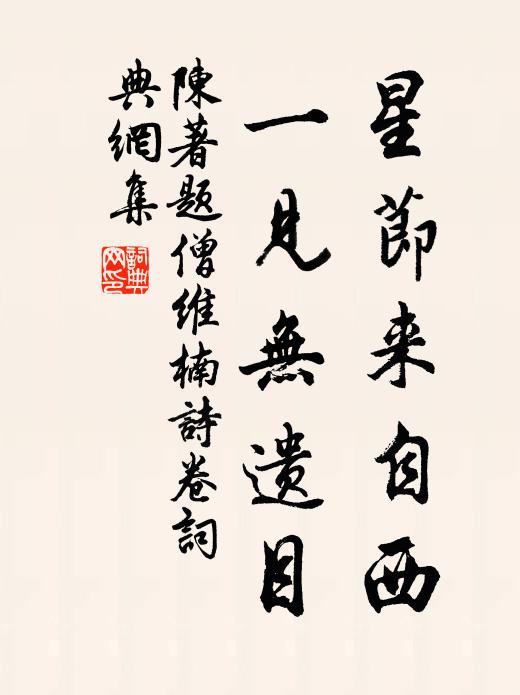 星節来自西
一見無遺目
陳著題僧維楠詩卷詞
典網集
詞典网印